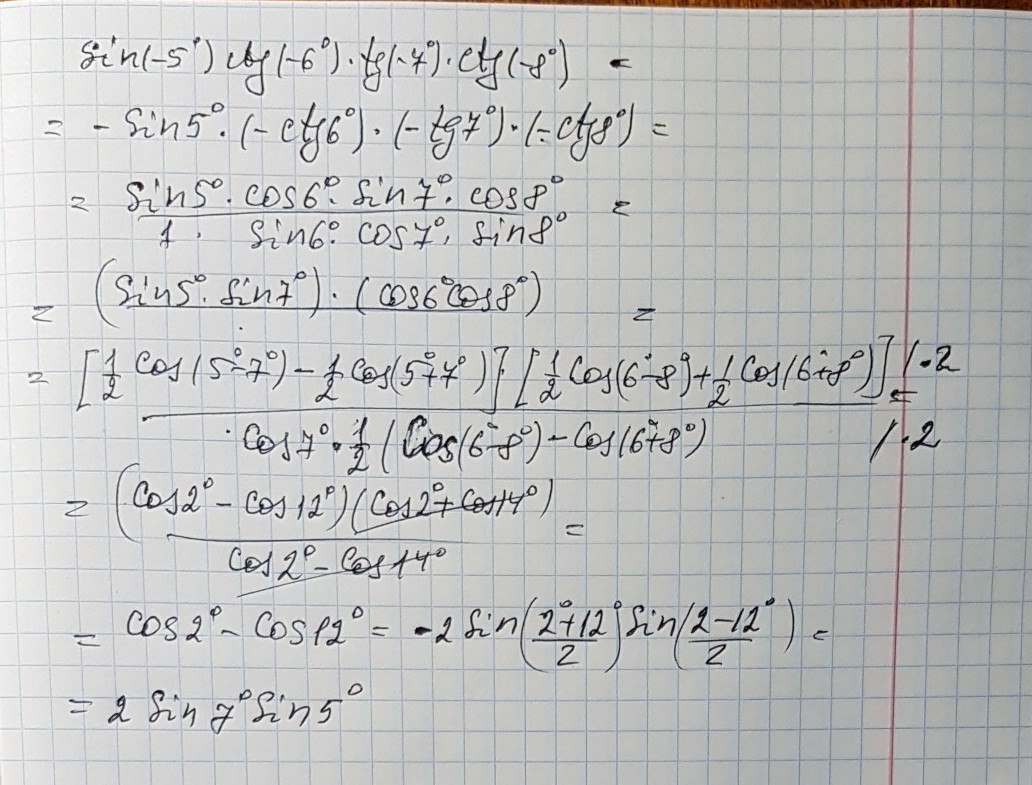 Sin(-5°) ctg(-6°)·tg(-7°)·ctg(-8°) =
= - Sin5°·(-ctg6°)·(-tg7°)·(-ctg8°) =
= Sin5°·cos6°·Sin7°·cos8° =
1 · Sin6°·cos7°·Sin8°
= (Sin5°·Sin7°)·(cos6°cos8°) =
= [1/2 Cos(5°-7°) - 1/2 Cos(5°+7°)]·[1/2 Cos(6°-8°) + 1/2 Cos(6°+8°)] /·2 =
Cos7°·1/2 (Cos(6°-8°) - Cos(6°+8°) /·2
= (Cos2° - cos12°)(Cos2°+Cos14°) =
Cos2° - Cos14°
= cos2° - Cos12° = -2 Sin(2°+12°/2) Sin(2-12°/2) =
= 2 Sin7°Sin5°